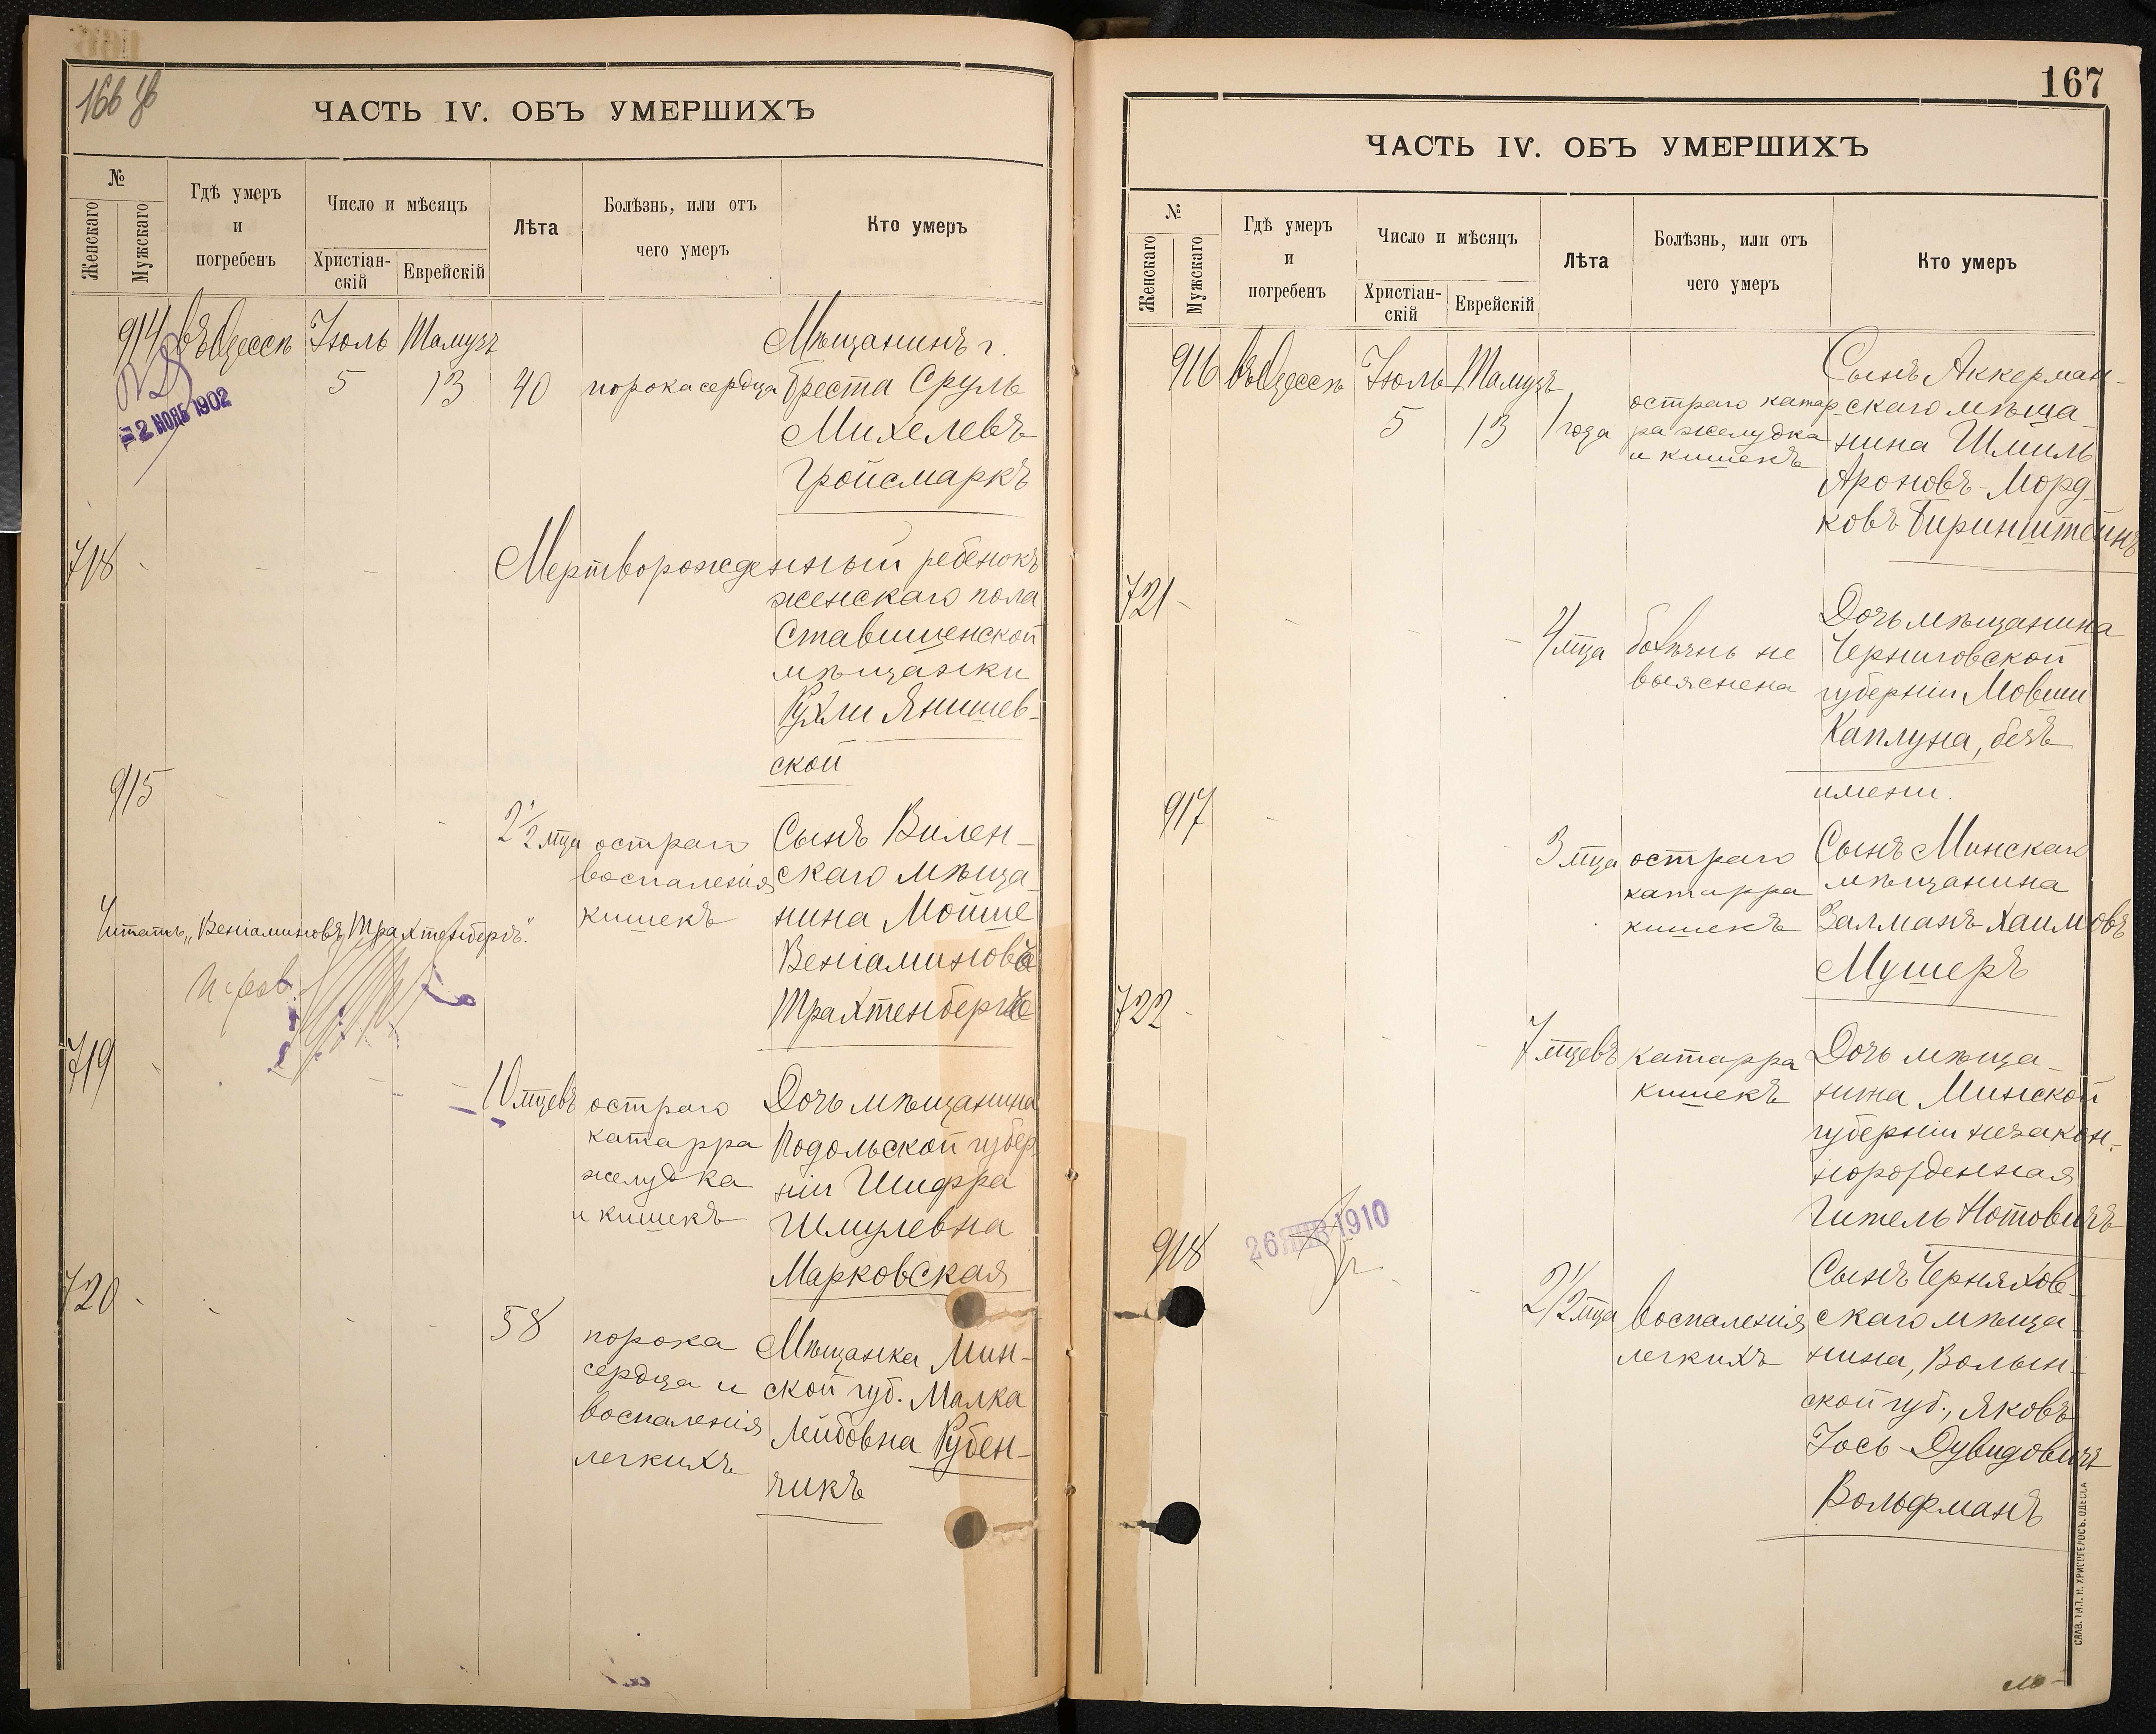 166 об
ЧАСТЬ IV. ОБЪ УМЕРШИХЪ
№
Женскаго
Мужскаго
Гдѣ умеръ
и
погребенъ
Число и мѣсяцъ
Христіан-
скій
Еврейскій
Лѣта
Болѣзнь, или отъ
чего умеръ
Кто умеръ
914 въ Одессѣ Іюль Тамузъ
5 13 40 порока сердца
Мѣщанинъ г.
Бреста Сруль
Михелевъ
Гройсмаркъ
2 НОЯБ 1902
718 - - - -
Мертворожденный ребенокъ
женскаго пола
Ставишенской
мѣщанки
Рухли Янишев-
ской
915 - - - -
2 1/2 мца острого
воспаленія
кишекъ
Сынъ Вилен-
скаго мѣща-
нина Мойше
Веніаминовъ
Трахтенбергъ
Читать „Веніаминовъ Трахтенбергъ".
719 - - - -
10 мцевъ остраго
катарра
желудка
и кишекъ
Дочь мѣщанина
Подольской губер-
ніи Шифра
Шмулевна
Марковская
720 - - - -
58 порока
сердца и
воспаленія
легкихъ
Мѣщанка Мин-
ской губ. Малка
Лейбовна Рубен-
чикъ
167
ЧАСТЬ IV. ОБЪ УМЕРШИХЪ
№
Женскаго
Мужскаго
Гдѣ умеръ
и
погребенъ
Число и мѣсяцъ
Христіан-
скій
Еврейскій
Лѣта
Болѣзнь, или отъ
чего умеръ
Кто умеръ
916 въ Одессѣ Іюль Тамузъ
5 13 1 года
остраго катар-
ра желудка
и кишекъ
Сынъ Аккерман-
скаго мѣща-
нина Шмиль
Ароновъ-Морд-
ковъ Биринштейнъ
721 - - - -
4 мца болѣзнь не
выяснена
Дочь мѣщанина
Черниговской
губерніи Мовши
Каплуна, безъ
имени.
917 - - -
3 мца остраго
катарра
кишекъ
Сынъ Минскаго
мѣщанина
Залманъ Хаимовъ
Мушеръ
722 - - - -
7 мцевъ катарра
кишекъ
Дочь мѣща-
нина Минской
губерніи незакон-
норожденная
Гитель Нотовичъ
918
26 ЯНВ 1910
2 1/2 мца воспаленія
легкихъ
Сынъ Черняхов-
скаго мѣща-
нина, Волын-
ской губ., Яковъ
Іось-Дувидовичъ
Вольфманъ
СЛАВ. ТИП. Н. ХРИСОГЕЛОСЪ. ОДЕССА